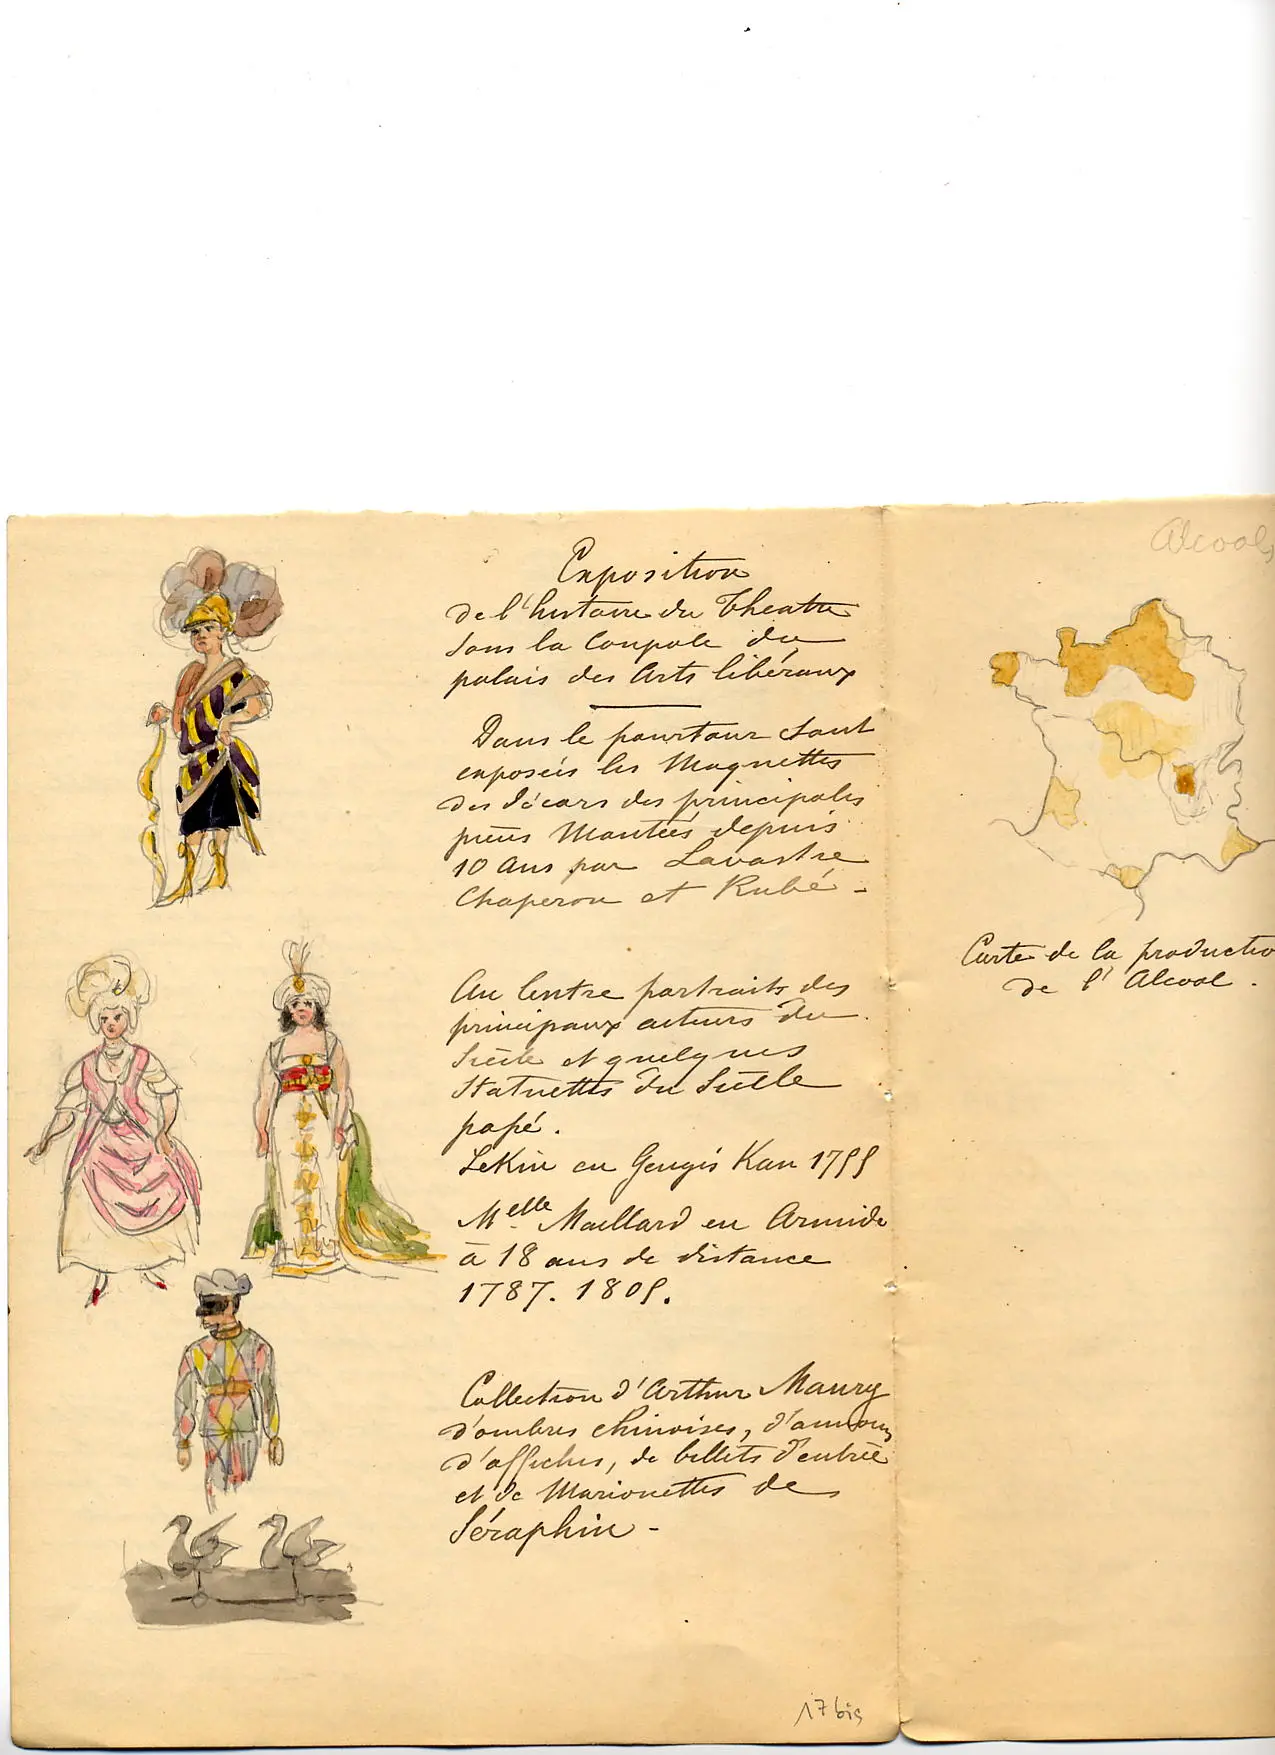 Exposition
de l'histoire du Theatre
sous la Coupole du
palais des Arts libéraux
Dans le pourtour sont
exposées les Maquettes
des décors des principales
pièces Montées depuis
10 ans par Lavastre
Chaperon et Rubé -
Au Centre portraits des
principaux acteurs du
Siècle et quelques
Statuettes du Siècle
passé.
LeKin en Gengis Kan 1755
Melle Maillard en Armide
à 18 ans de distance
1787. 1805.
Collection d'Arthur Maury
d'ombres chinoises,
d'affiches, de billets d'entrée
et de Marionettes de
Séraphin -
17 bis
Alcool
Carte de la productio
de l'Alcool .